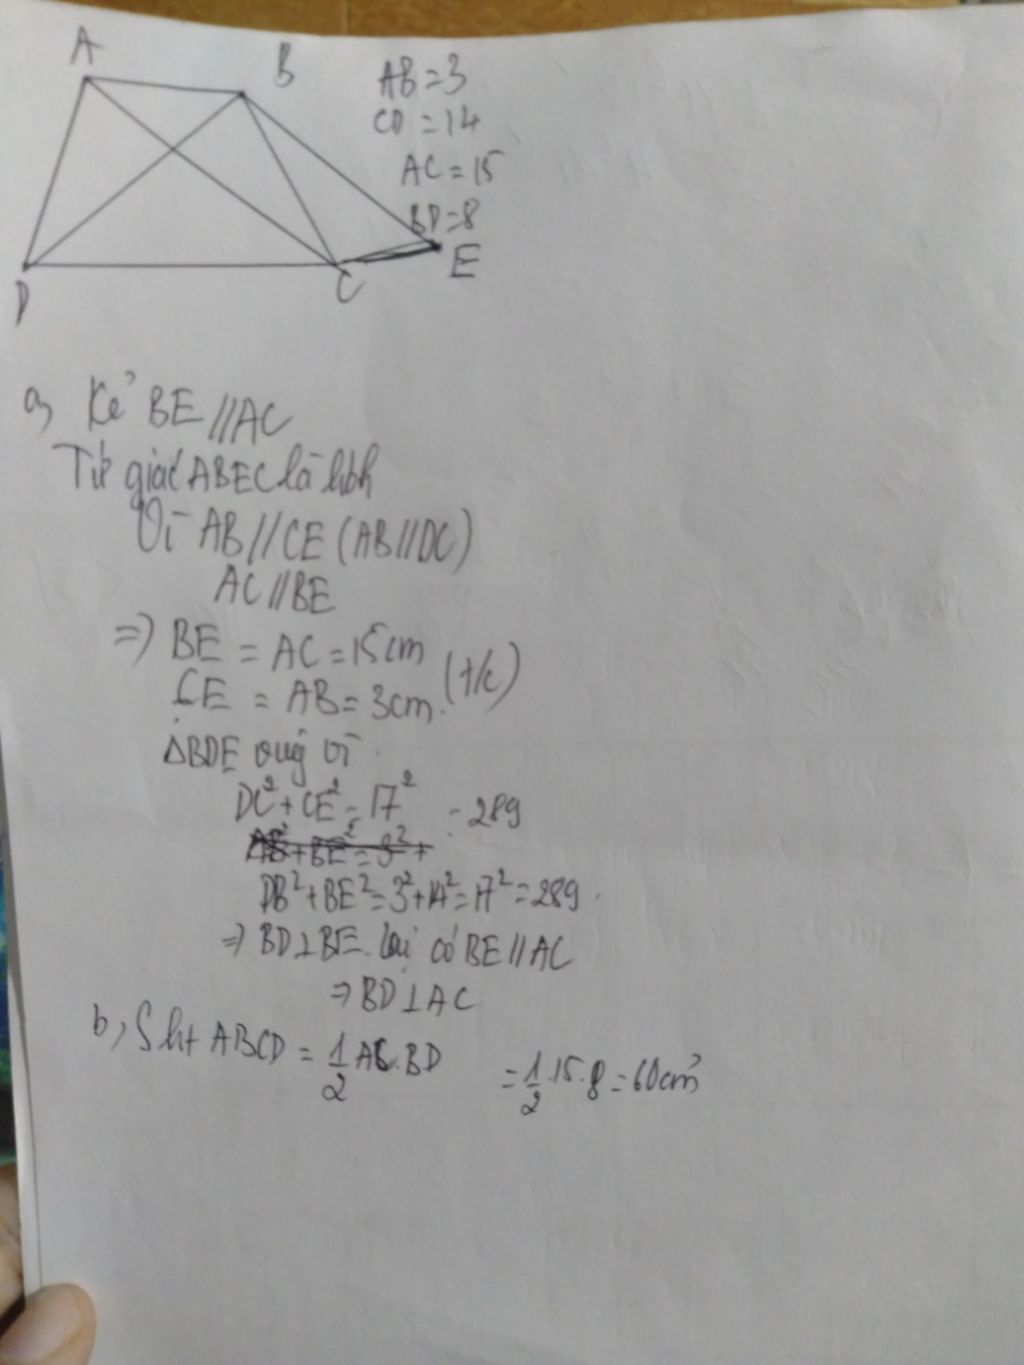 A
B
AB = 3
CD = 14
AC = 15
BD = 8
E
D
C
a, Kẻ BE // AC
Tứ giác ABEC là hbh
Vì AB // CE (AB // DC)
AC // BE
=> BE = AC = 15cm
CE = AB = 3cm. (t/c)
ΔBDE vuông vì
DC² + CE² = 17² = 289
AB² + BE² = 8² +
DB² + BE² = 3² + 14² = 17² = 289.
=> BD ⊥ BE. lại có BE // AC
=> BD ⊥ AC
b, S ht ABCD = 1/2 AC. BD = 1/2 .15.8 = 60cm²